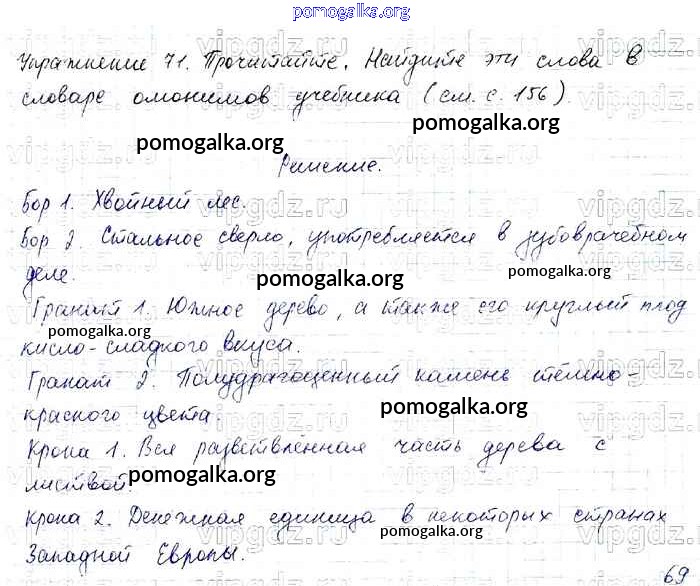 pomogalka.org
Упражнение 71. Прочитайте. Найдите эти слова в
словаре омонимов учебника (см. с. 156).
pomogalka.org
pomogalka.org
Решение.
Бор 1. Хвойный лес.
Бор 2. Стальное сверло, употребляется в зубоврачебном
деле.
pomogalka.org
pomogalka.org
Гранат 1. Южное дерево, а также его круглый плод
pomogalka.org
кисло-сладкого вкуса.
Гранат 2. Полудрагоценный камень тёмно-
красного цвета.
pomogalka.org
pomogalka.org
Крона 1. Вся разветвлённая часть дерева с
листвой.
pomogalka.org
Крона 2. Денежная единица в некоторых странах
pomogalka.org
Западной Европы.
69
vipgdz.ru